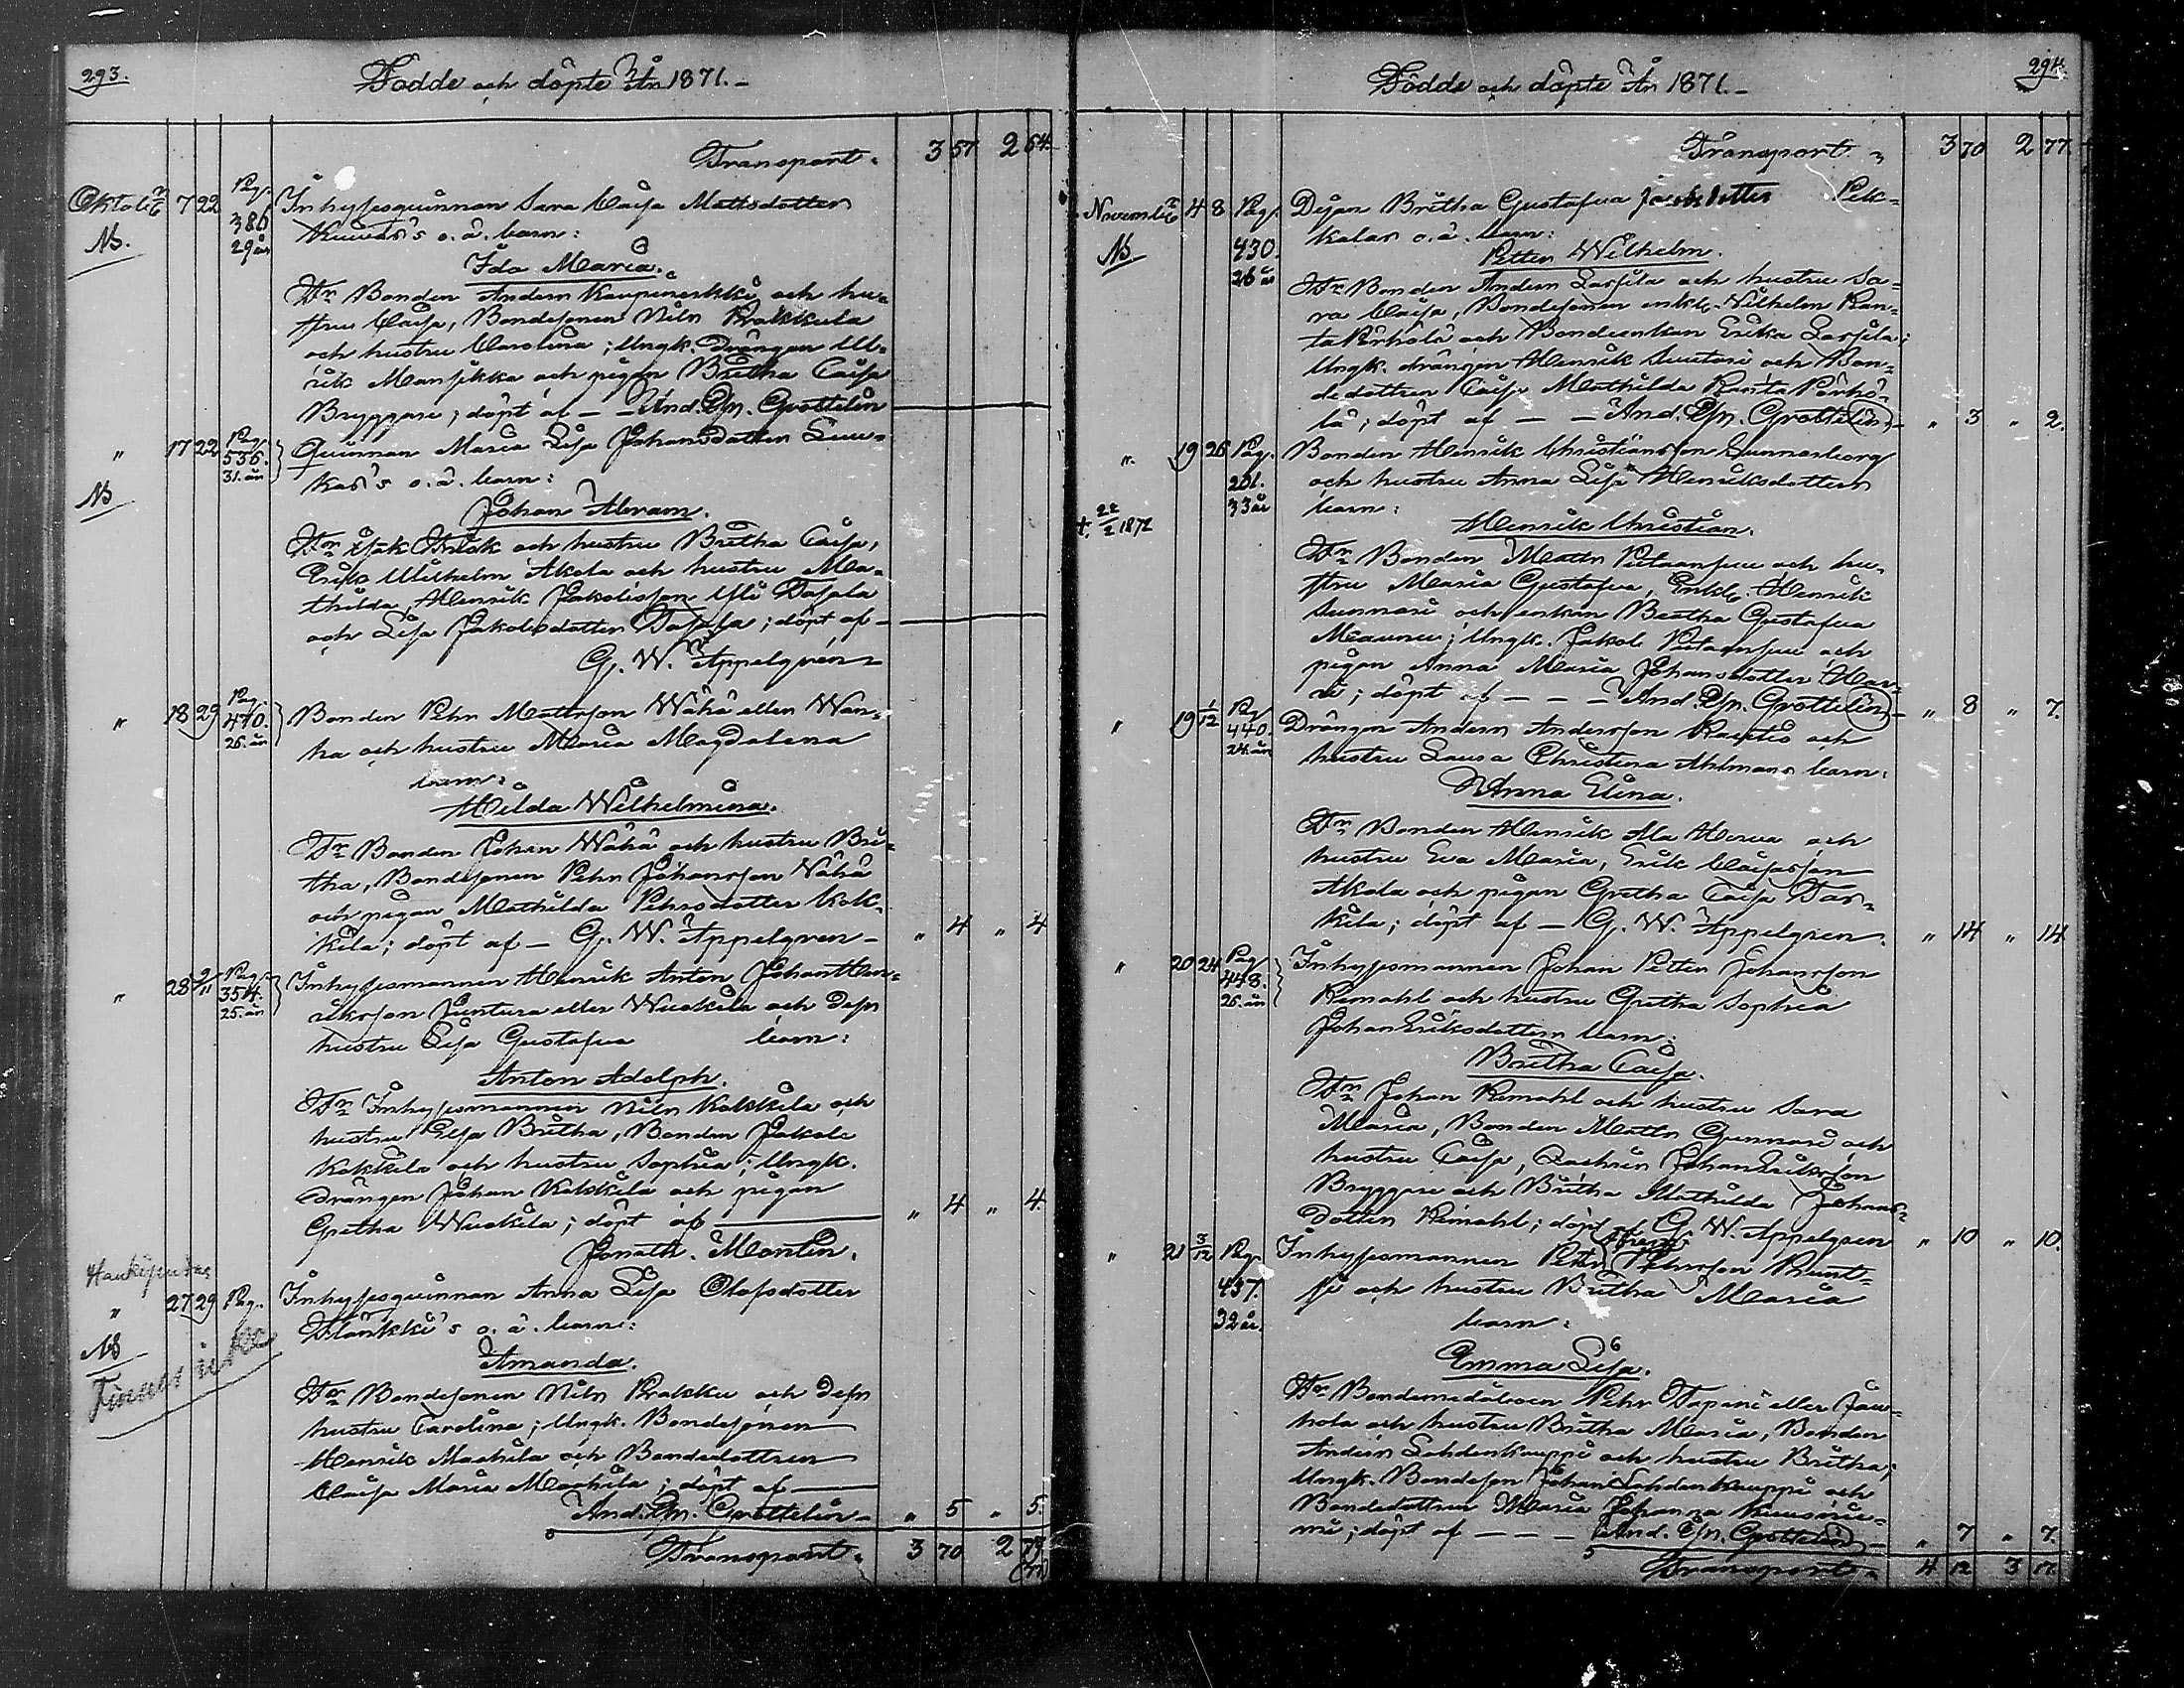 293.
Födde och döpte År 1871.
Transport. 3 57 2 64.
Oktob. 7 22 Pag. 386 29 år Inhysesquinnan Sara Caisa Mattsdotter
NB. o. ä. barn:
Ida Maria.
Fr. Bonden Anders och hu-
stru Caisa, Bondesonen Nils Prokkula
och hustru Carolina; Ungk. drängen Ul-
rik Mansikka och pigan Britha Caisa
Bryggare; döpt af — And. Em. Grottelin
" 17 22 Pag. 536. 31. år Quinnan Maria Lisa Johansdotter Luu-
NB kas's o. ä. barn:
Johan Abram.
Fr. Isak och hustru Britha Caisa,
Erik Wilhelm Akola och hustru Ma-
thilda, Henrik Jakobsson
och Lisa Jakobsdotter; döpt af —
G. W. Appelgren
" 18 29 Pag. 470. 26. år Bonden Pehr Mattsson Wähä eller Wan-
ha och hustru Maria Magdalena
barn:
Hilda Wilhelmina.
Fr. Bonden Johan Wähä och hustru Bri-
tha, Bondesonen Pehr Johansson Wähä
och pigan Mathilda Pehrsdotter Kok-
kila; döpt af — G. W. Appelgren — " 4 " 4
" 28 2/11 Pag. 354. 25. år Inhysesmannen Henrik Anton Johan Hen-
riksson Juntura eller Wuokila och dess
hustru Lisa Gustafva barn:
Anton Adolph.
Fr. Inhysesmannen Nils Kokkila och
hustru Elsa Britha, Bonden Jakob
Kokkila och hustru Sophia; Ungk.
drängen Johan Kokkila och pigan
Gretha Wuokila; döpt af — " 4 " 4.
Jonath. Montin.
Haukipudas
" 27 29 Pag. Inhysesquinnan Anna Lisa Olofsdotter
NB o. ä. barn:
Finnes icke
Amanda.
Fr. Bondesonen Nils Prokku och dess
hustru Carolina; Ungk. Bondesonen
Henrik Maekila och Bondedottren
Caisa Maria Maekila; döpt af —
And. Em. Grottelin — " 5 " 5.
Transport. 3 70 2 77
294.
Födde och döpte År 1871.
Transport. 3 70 2 77.
Novemb. 4 8 Pag. 430. 26 år Dejan Britha Gustafva Jacobsdotter Pik-
NB kalas o. ä. barn:
Petter Wilhelm.
Fr. Bonden Anders Lassila och hustru Sa-
ra Caisa, Bondesonen enkl. Wilhelm Ran-
ta Pörhölä och Bondeenkan Erika Lassila;
Ungk. drängen Henrik Suutari och Bon-
dedottren Caisa Mathilda Ranta Pörhö-
lä; döpt af — — And. Em. Grottelin — " 3 " 2.
" 19 26 Pag. 201. 33 år Bonden Henrik Christiansson Gunnarborg
och hustru Anna Lisa Henriksdotters
† 22/2 1872 barn:
Henrik Christian.
Fr. Bonden Matts Piitaansuu och hu-
stru Maria Gustafva, Enkl. Henrik
Sunnari och enkan Britha Gustafva
Maunu; Ungk. Jakob Piitaansuu och
pigan Anna Maria Johansdotter
döpt af — — And. Em. Grottelin — " 8 " 7.
" 19 1/12 Pag. 440. 24 år Drängen Anders Andersson Rautio och
hustru Lovisa Christina Ahlmans barn:
Anna Elina.
Fr. Bonden Henrik Ala Herva och
hustru Eva Maria, Erik
Akola och pigan Gretha Caisa
döpt af — G. W. Appelgren. " 14 " 14
" 20 24 Pag. 448. 26. år Inhysesmannen Johan Petter Johansson
Rimahl och hustru Gretha Sophia
Johan Eriksdotters barn:
Britha Caisa.
Fr. Johan Rimahl och hustru Sara
Maria, Bonden Matts Gunnari och
hustru Caisa, Johan Eriksson
Bryggare och Britha Mathilda Johans-
dotter Rimahl; döpt af G. W. Appelgren " 10 " 10.
" 21 3/12 Pag. 437. 32 år. Inhysesmannen Petter Pehrsson
och hustru Britha Maria
barn:
Emma Lisa.
Fr. Bondemedåboen Pehr Tapani eller Jau-
hola och hustru Britha Maria, Bonden
Anders Lohdenkauppi och hustru Britha;
Ungk. Bondeson Johan Lohdenkauppi och
Bondedottren Maria Johanna Kuusinie-
mi; döpt af — — — And. Em. Grottelin — " 7 " 7.
Transport. 4 12 3 17.